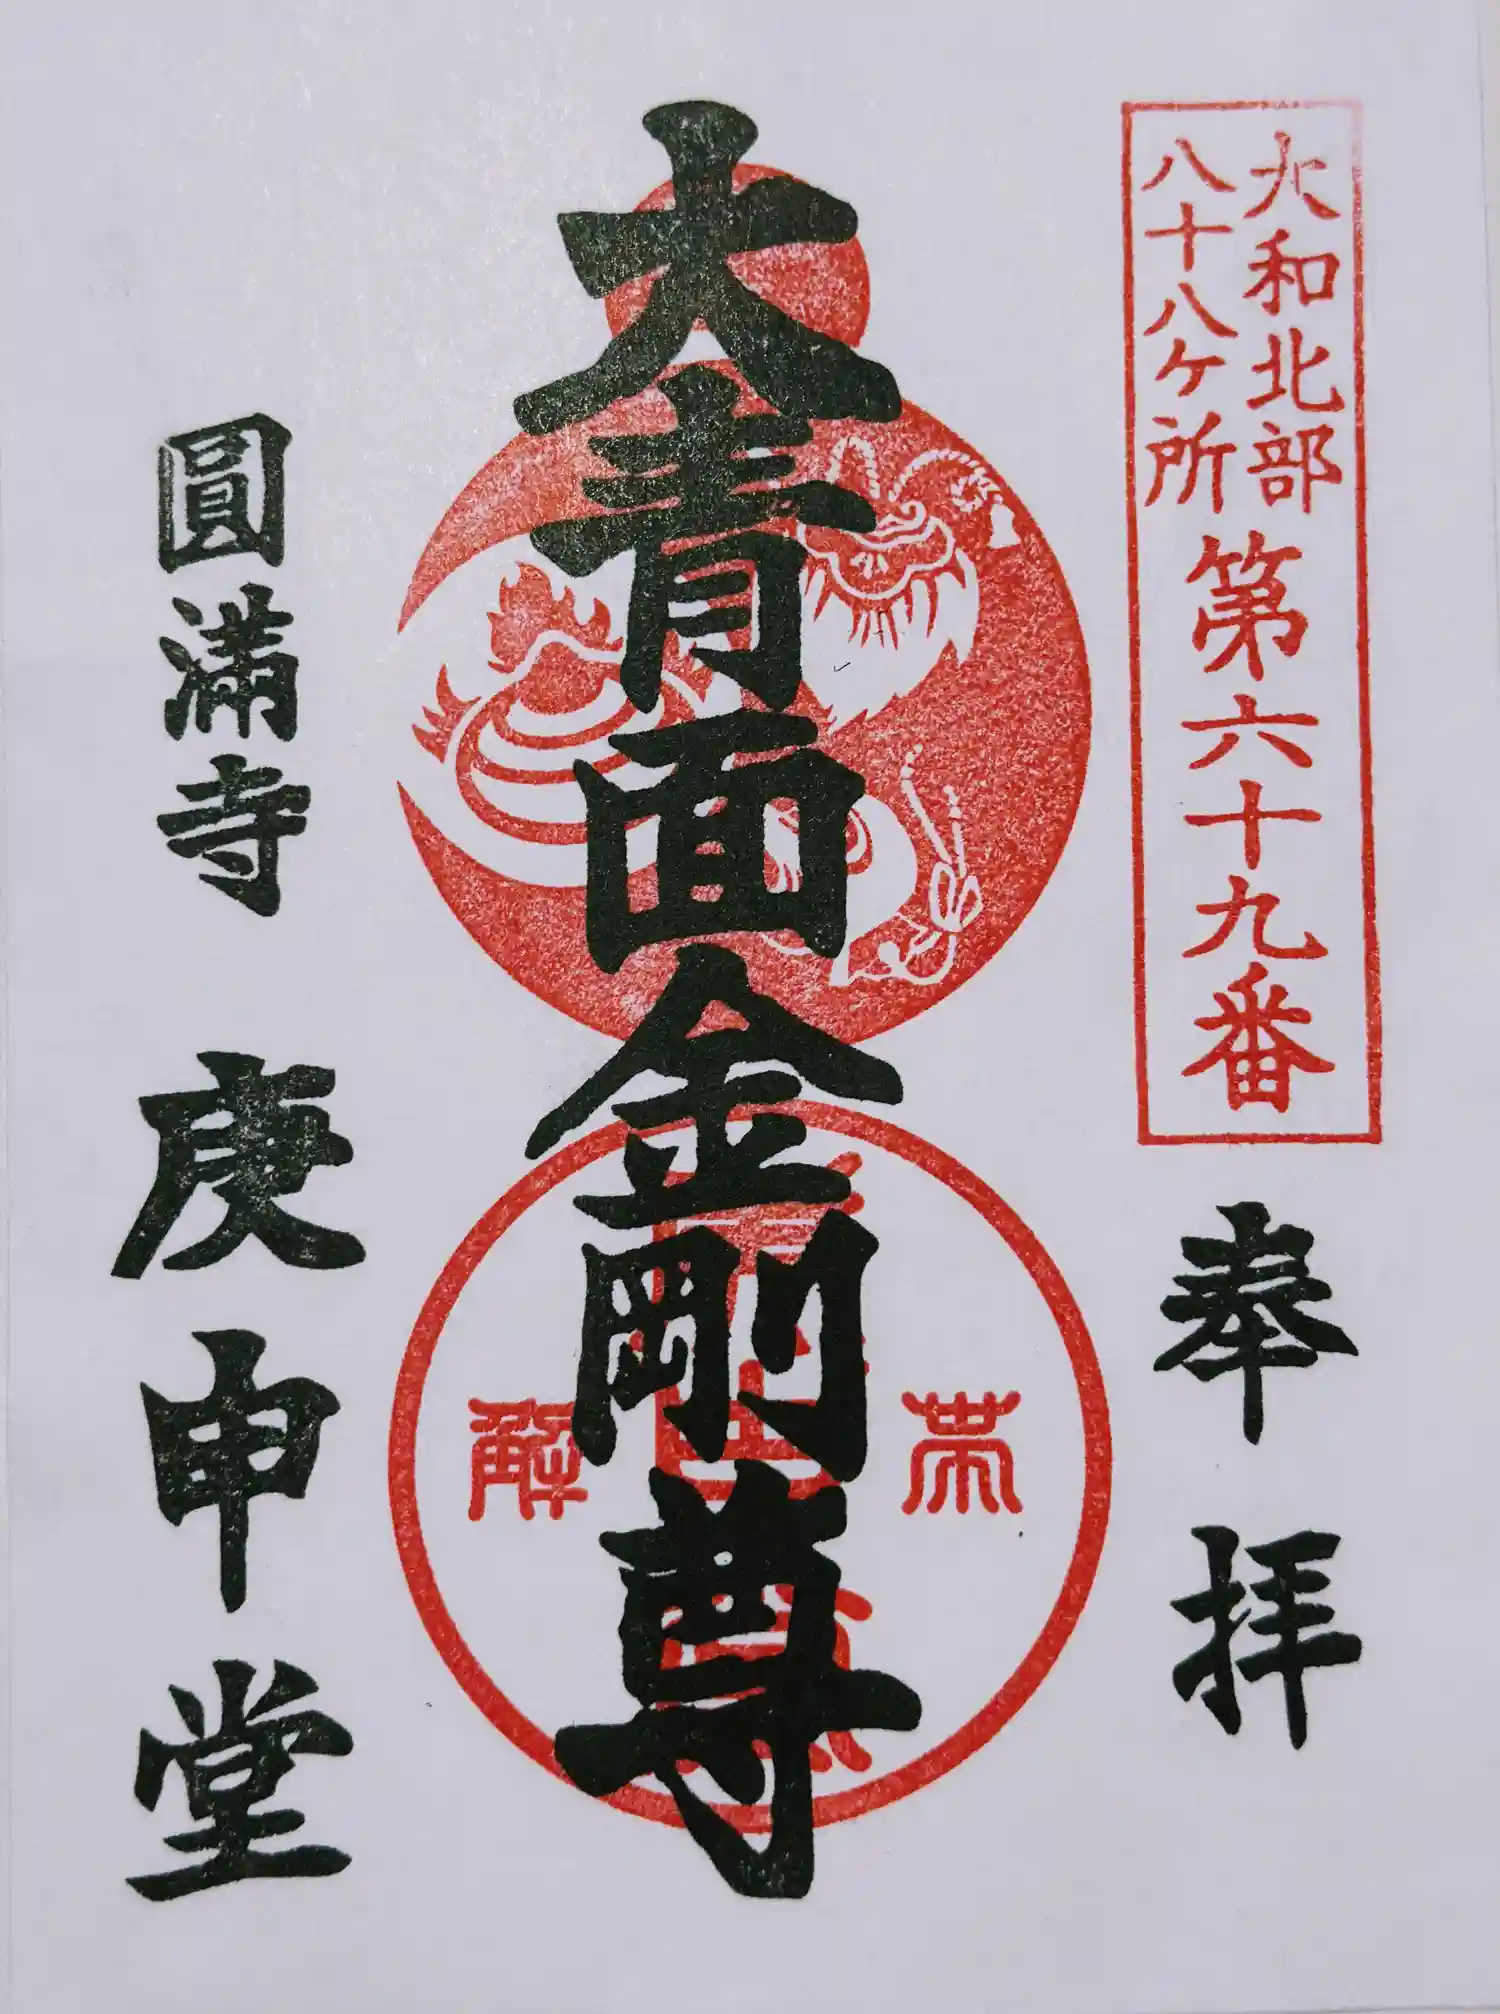 大和北部
八十八ケ所
第六十九番
奉拝
大青面金剛尊
帯
解
圓満寺
庚申堂